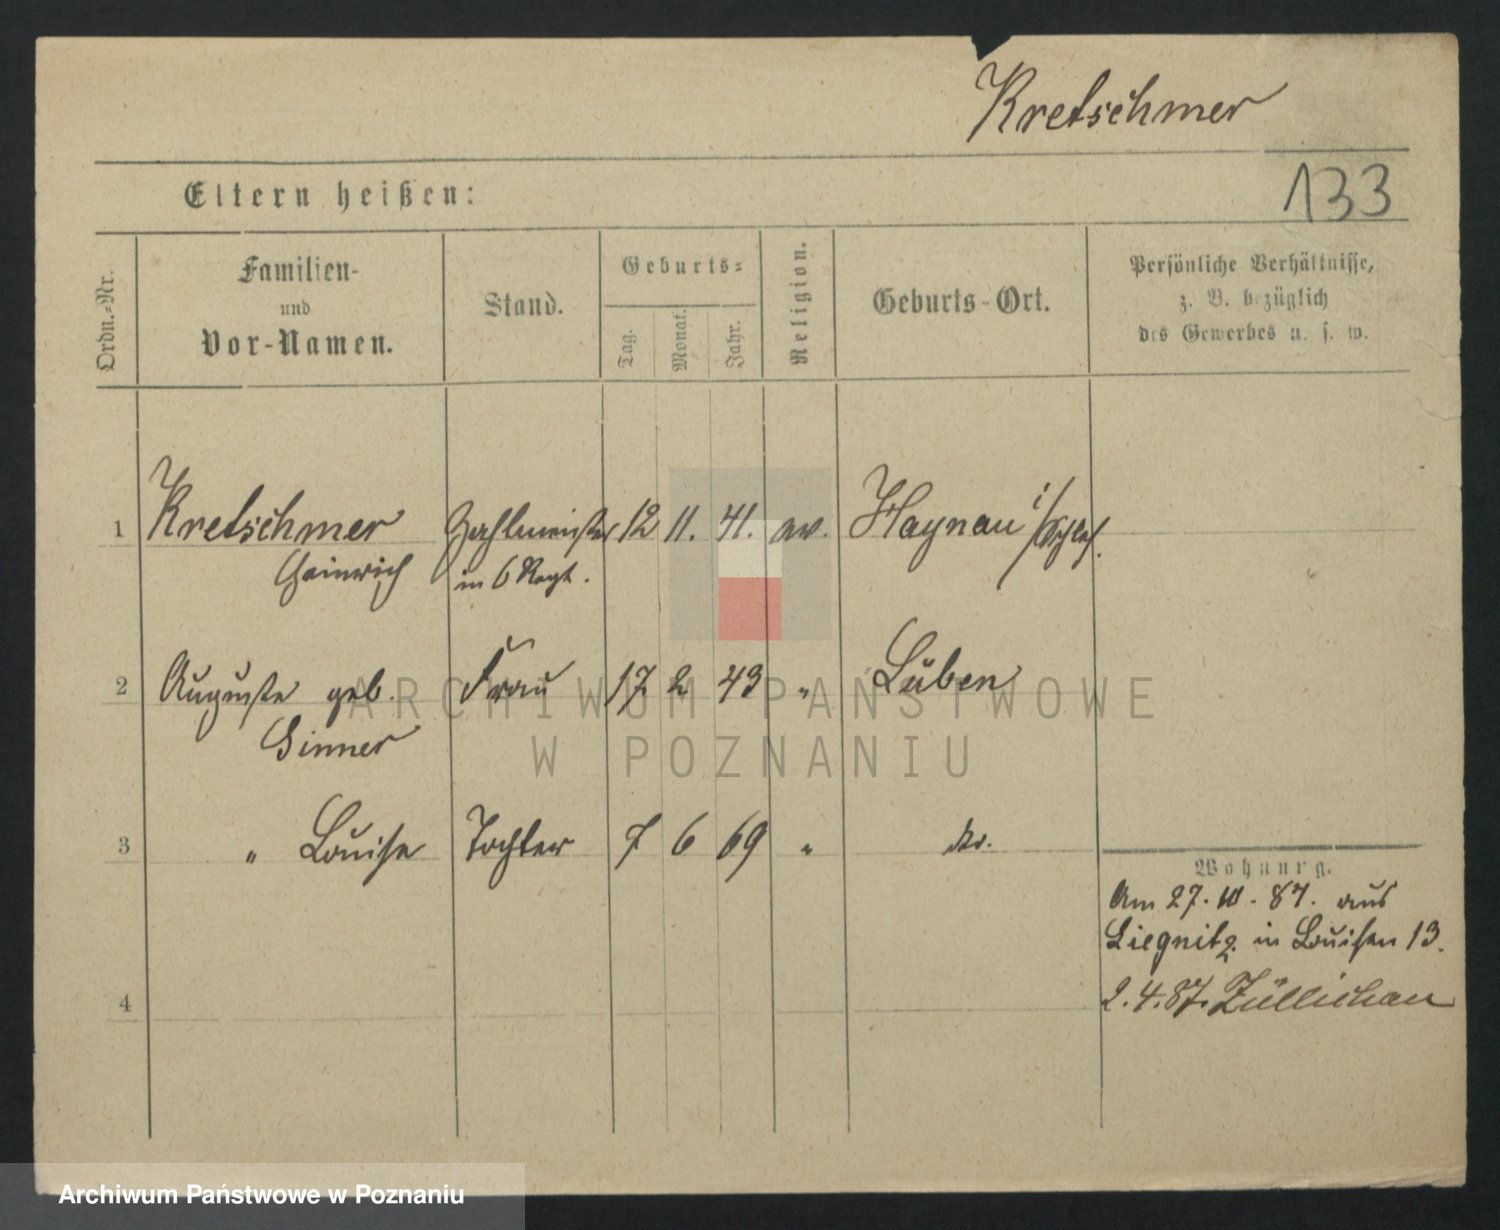 Kretschmer
Eltern heißen:
133
Ordn.-Nr.
Familien-
und
Vor-Namen.
Stand.
Geburts-
Tag.
Monat.
Jahr.
Religion.
Geburts-Ort.
Persönliche Verhältnisse,
z. B. bezüglich
des Gewerbes u. s. w.
1 Kretschmer Zahlmeister 12 11. 41. ev. Haynau i/Schles.
Heinrich in 6 Regt.
2 Auguste geb. Frau 17 2 43 " Lüben
Ginner
3 " Louise Tochter 7 6 69 " do.
Wohnung.
Am 27. . 87. aus
Liegnitz in Louisen 13.
4
2.4.87. Züllichau
ARCHIWUM PAŃSTWOWE
W POZNANIU
Archiwum Państwowe w Poznaniu